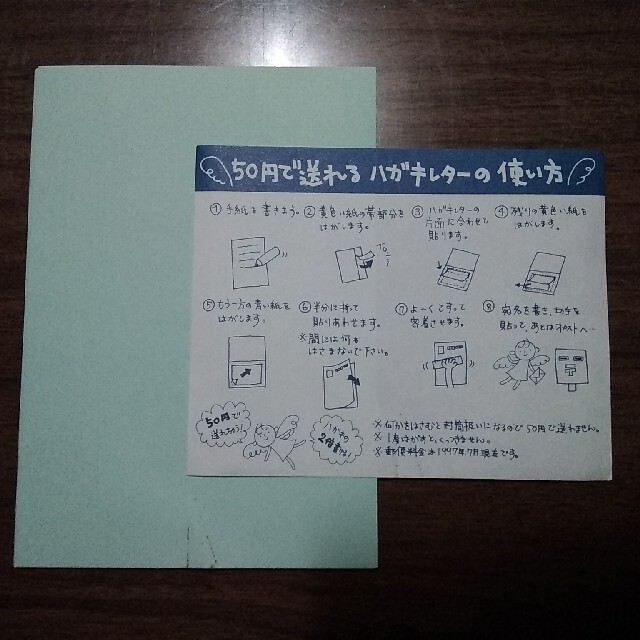 50円で送れるハガキレターの使い方
① 手紙を書きましょう。
② 黄色い紙の帯部分を
はがします。
③ ハガキレターの
片面に合わせて
貼ります。
④ 残りの黄色い紙を
はがします。
⑤ もう一方の青い紙を
はがします。
⑥ 半分に折って
貼りあわせます。
※間には何も
はさまないで下さい。
⑦ よーくこすって
密着させます。
⑧ 宛名を書き、切手を
貼って、あとはポストへ…
50円で
送れちゃう!
ハガキの
※何かをはさむと封筒扱いになるので50円で送れません。
※1度はがすと、くっつきません。
※郵便料金は1997年7月現在です。